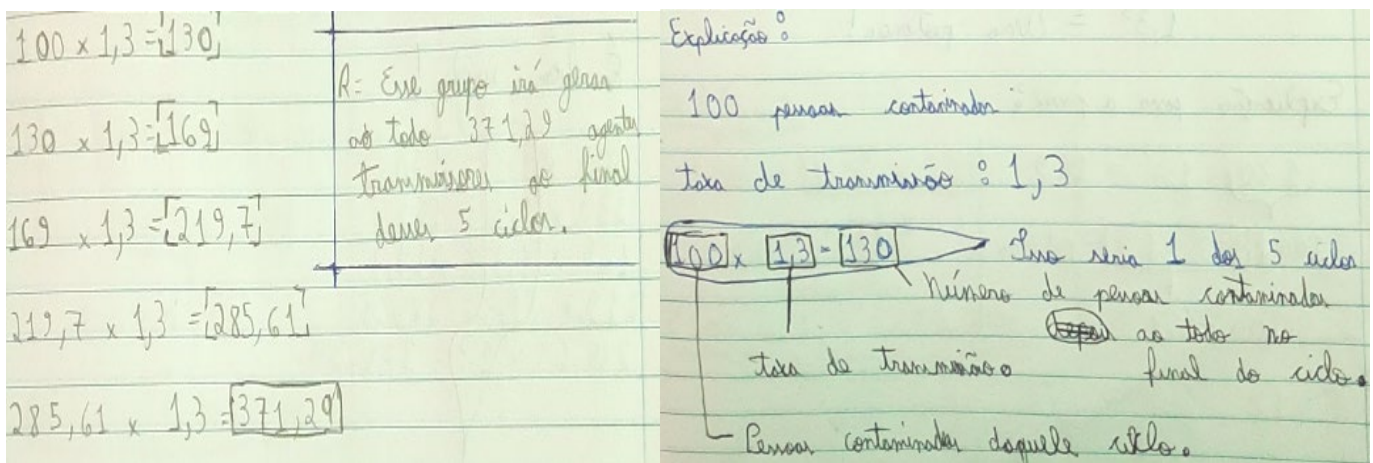 100 x 1,3 = 130
130 x 1,3 = 169
169 x 1,3 = 219,7
219,7 x 1,3 = 285,61
285,61 x 1,3 = 371,29
R: Esse grupo irá gerar
ao todo 371,29 agentes
transmissores ao final
desses 5 ciclos.
Explicação:
100 pessoas contaminadas
taxa de transmissão : 1,3
100 x 1,3 = 130 Isso seria 1 dos 5 ciclos
Número de pessoas contaminadas
ao todo no
taxa de transmissão. final do ciclo.
Pessoas contaminadas daquele ciclo.